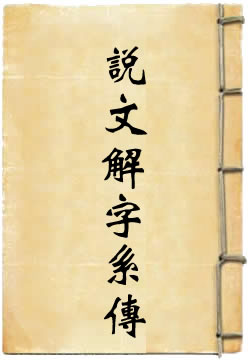 説文解字系傳